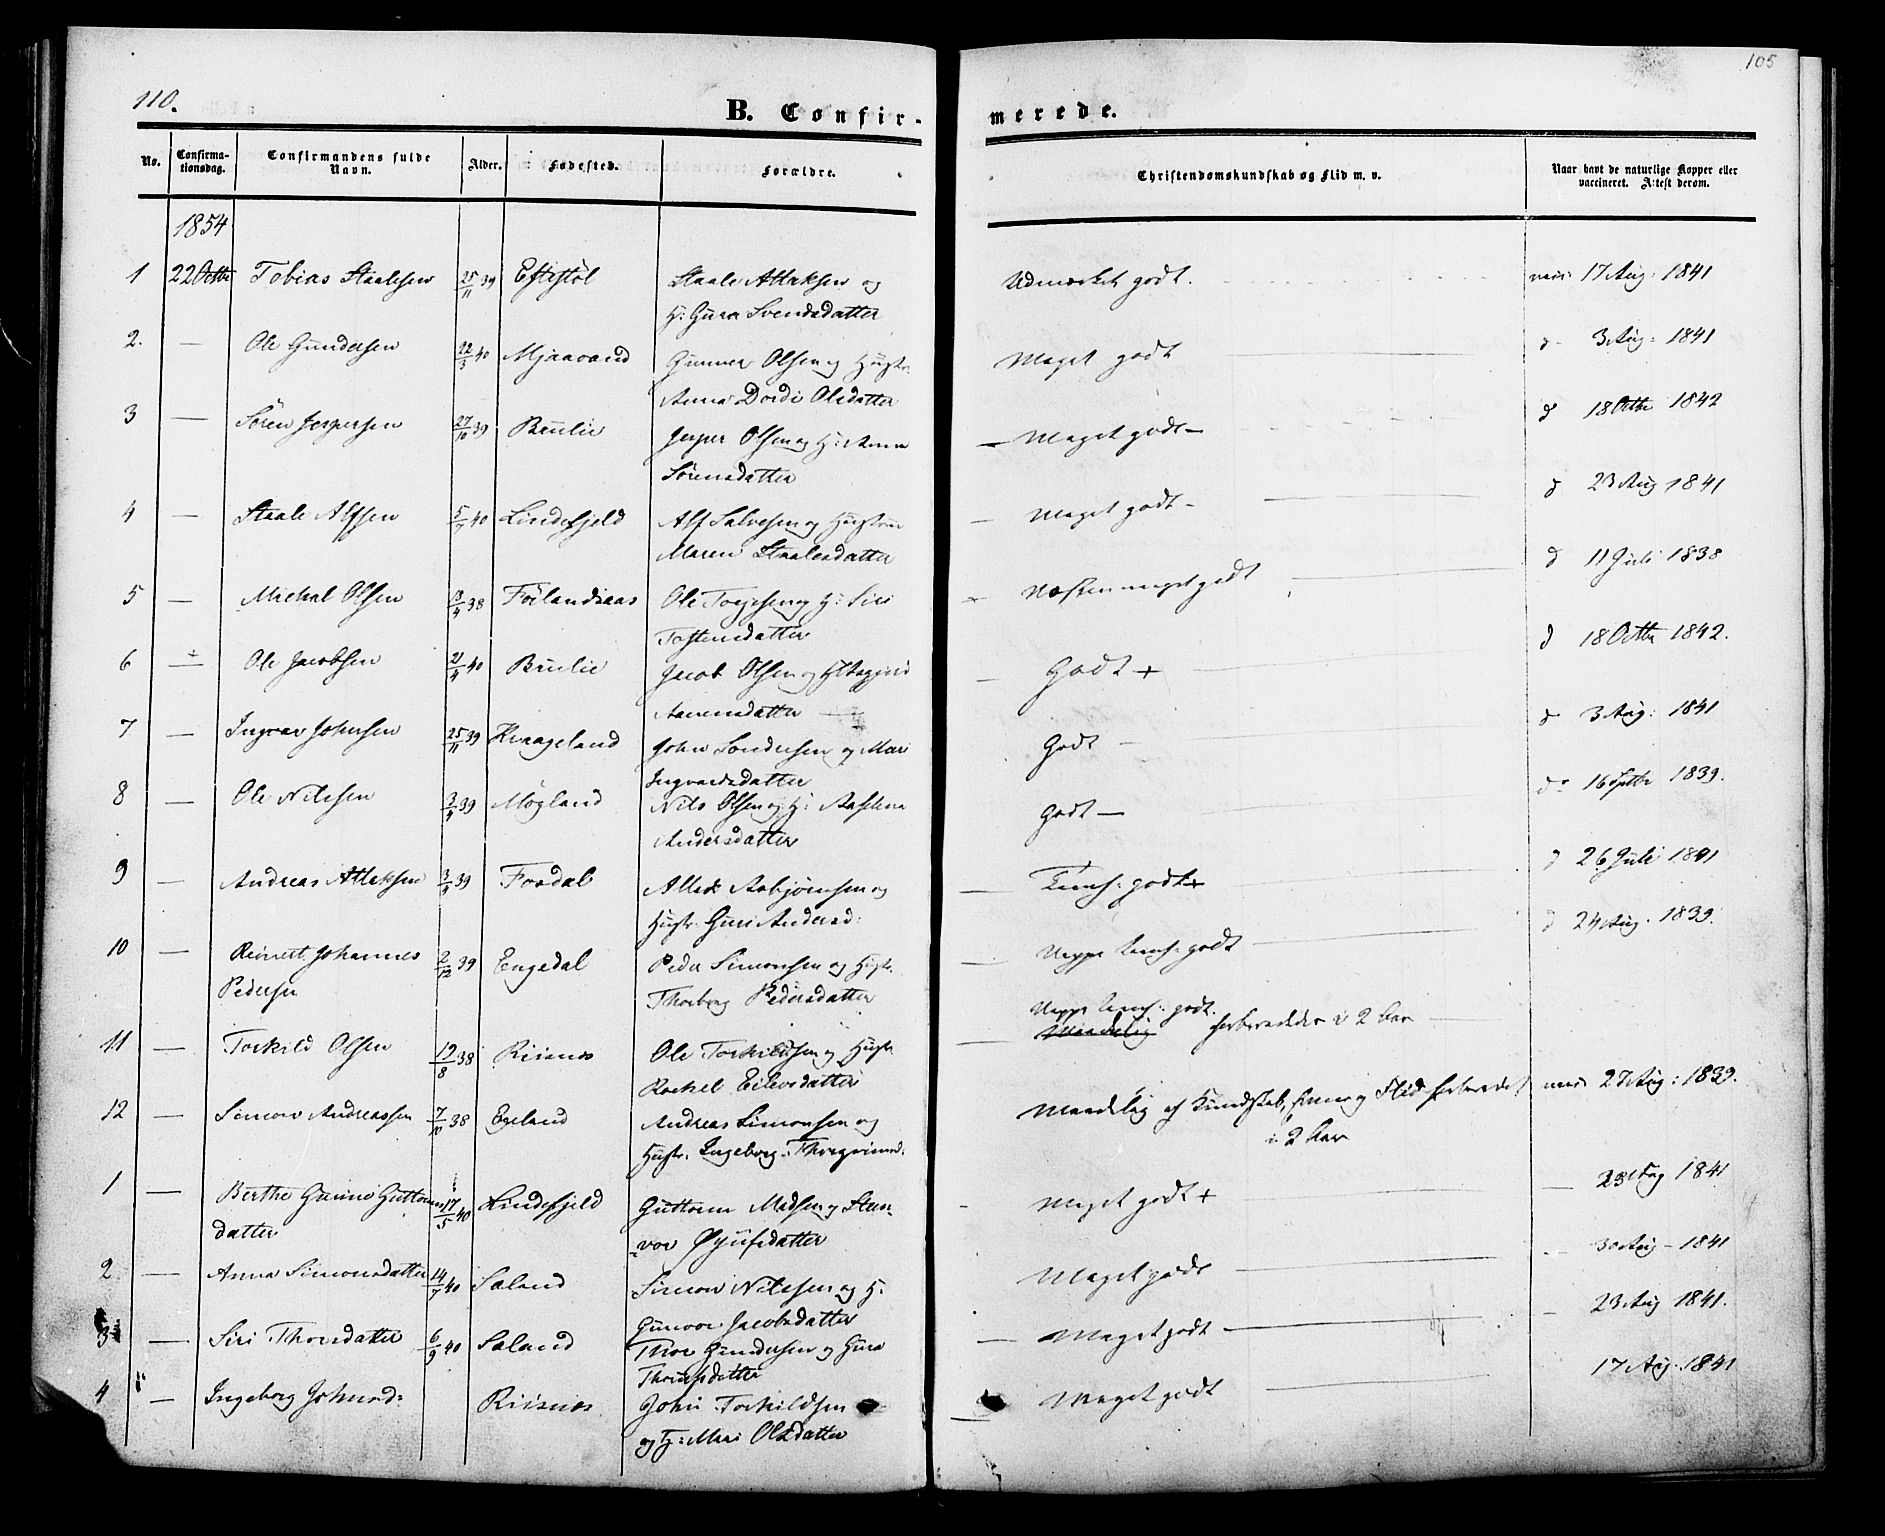 110.
105
B. Confir-
merede.
No.
Confirma-
tionsdag.
Confirmandens fulde
Navn.
Alder.
Fødested.
Forældre.
Christendomskundskab og Flid m. v.
Naar havt de naturlige Kopper eller
vaccineret. Attest derom.
1854
1 22 Octbr Tobias Staalesen 25/11 39 Eftestøl Staale Attaksen og Udmærket godt. vacc: 17 Aug: 1841
H: Guro Svendsdatter
2. — Ole Gundersen 22/3 40 Mjaavand Gunner Olsen og Hustr: Meget godt d 3 Aug: 1841
Anna Dordi Olsdatter
3 — Sören Jespersen 27/10 39 Brulie Jesper Olsen og H: Anna — Meget godt — d 18 Octbr 1842
Sörensdatter
4 — Staale Alfsen 5/7 40 Lindefjeld Alf Salvesen og Hustru — Meget godt - d 23 Aug 1841
Maren Staalesdatter
5 — Michal Olsen 13/4 38 Förlandsaas Ole Torjesen og H: Siri Næsten meget godt d 11 Juli 1838
Tostensdatter
6 — Ole Jacobsen 21/4 40 Brulie Jacob Olsen og — Godt + d 18 Octbr 1842.
Aanensdatter
7 — Ingvar Johnsen 25/11 39 Kvaageland John Sondresen og Mari Godt — d 3 Aug: 1841
Ingvardsdatter
8 — Ole Nilssen 2/4 39 Mögland Nils Olsen og H: Aaselena Godt — d 16 Septbr 1839.
Andersdatter
9 — Andreas Attaksen 3/9 39 Fosdal Attak Asbjörnsen og — Tems: godt + d 26 Juli 1841
Hustr: Guri Andersd:
10 — Reinert Johannes 2/12 39 Engedal Peder Simonsen og Hustr: — Neppe tems: godt d 24 Aug. 1839.
Pedersen Thorborg Pedersdatter
Neppe tems: godt.
11 — Torkild Olsen 19/8 38 Riisnes Ole Torkildsen og Hustr — Maadelig forberedder i 2 Aar
Rachel Eilevsdatter
12 — Simon Andreassen 7/10 38 Egeland Andreas Simonsen og Maadelig af Kundskab, og Flid forberedt vacc 27 Aug: 1839.
Hustr: Ingeborg Thorgrimsd: i 2 Aar
1 — Berthe Gunne Guttorms 17/5 40 Lindefjeld Guttorm Madsen og Sten- Meget godt + — 23 Aug 1841
datter vor Øysufsdatter
2 — Anna Simonsdatter 14/7 40 Saland Simon Nilssen og H: Meget godt 30 Aug - 1841
Gunvor Jacobsdatter
3 — Siri Thorsdatter 6/9 40 Saland Thor Gundersen og Guro — Meget godt — 23 Aug 1841.
4 — Ingeborg Johnsd: Riisnes John Torkildsen — Meget godt 17 Aug. 1841
og H: Mari Olsdatter